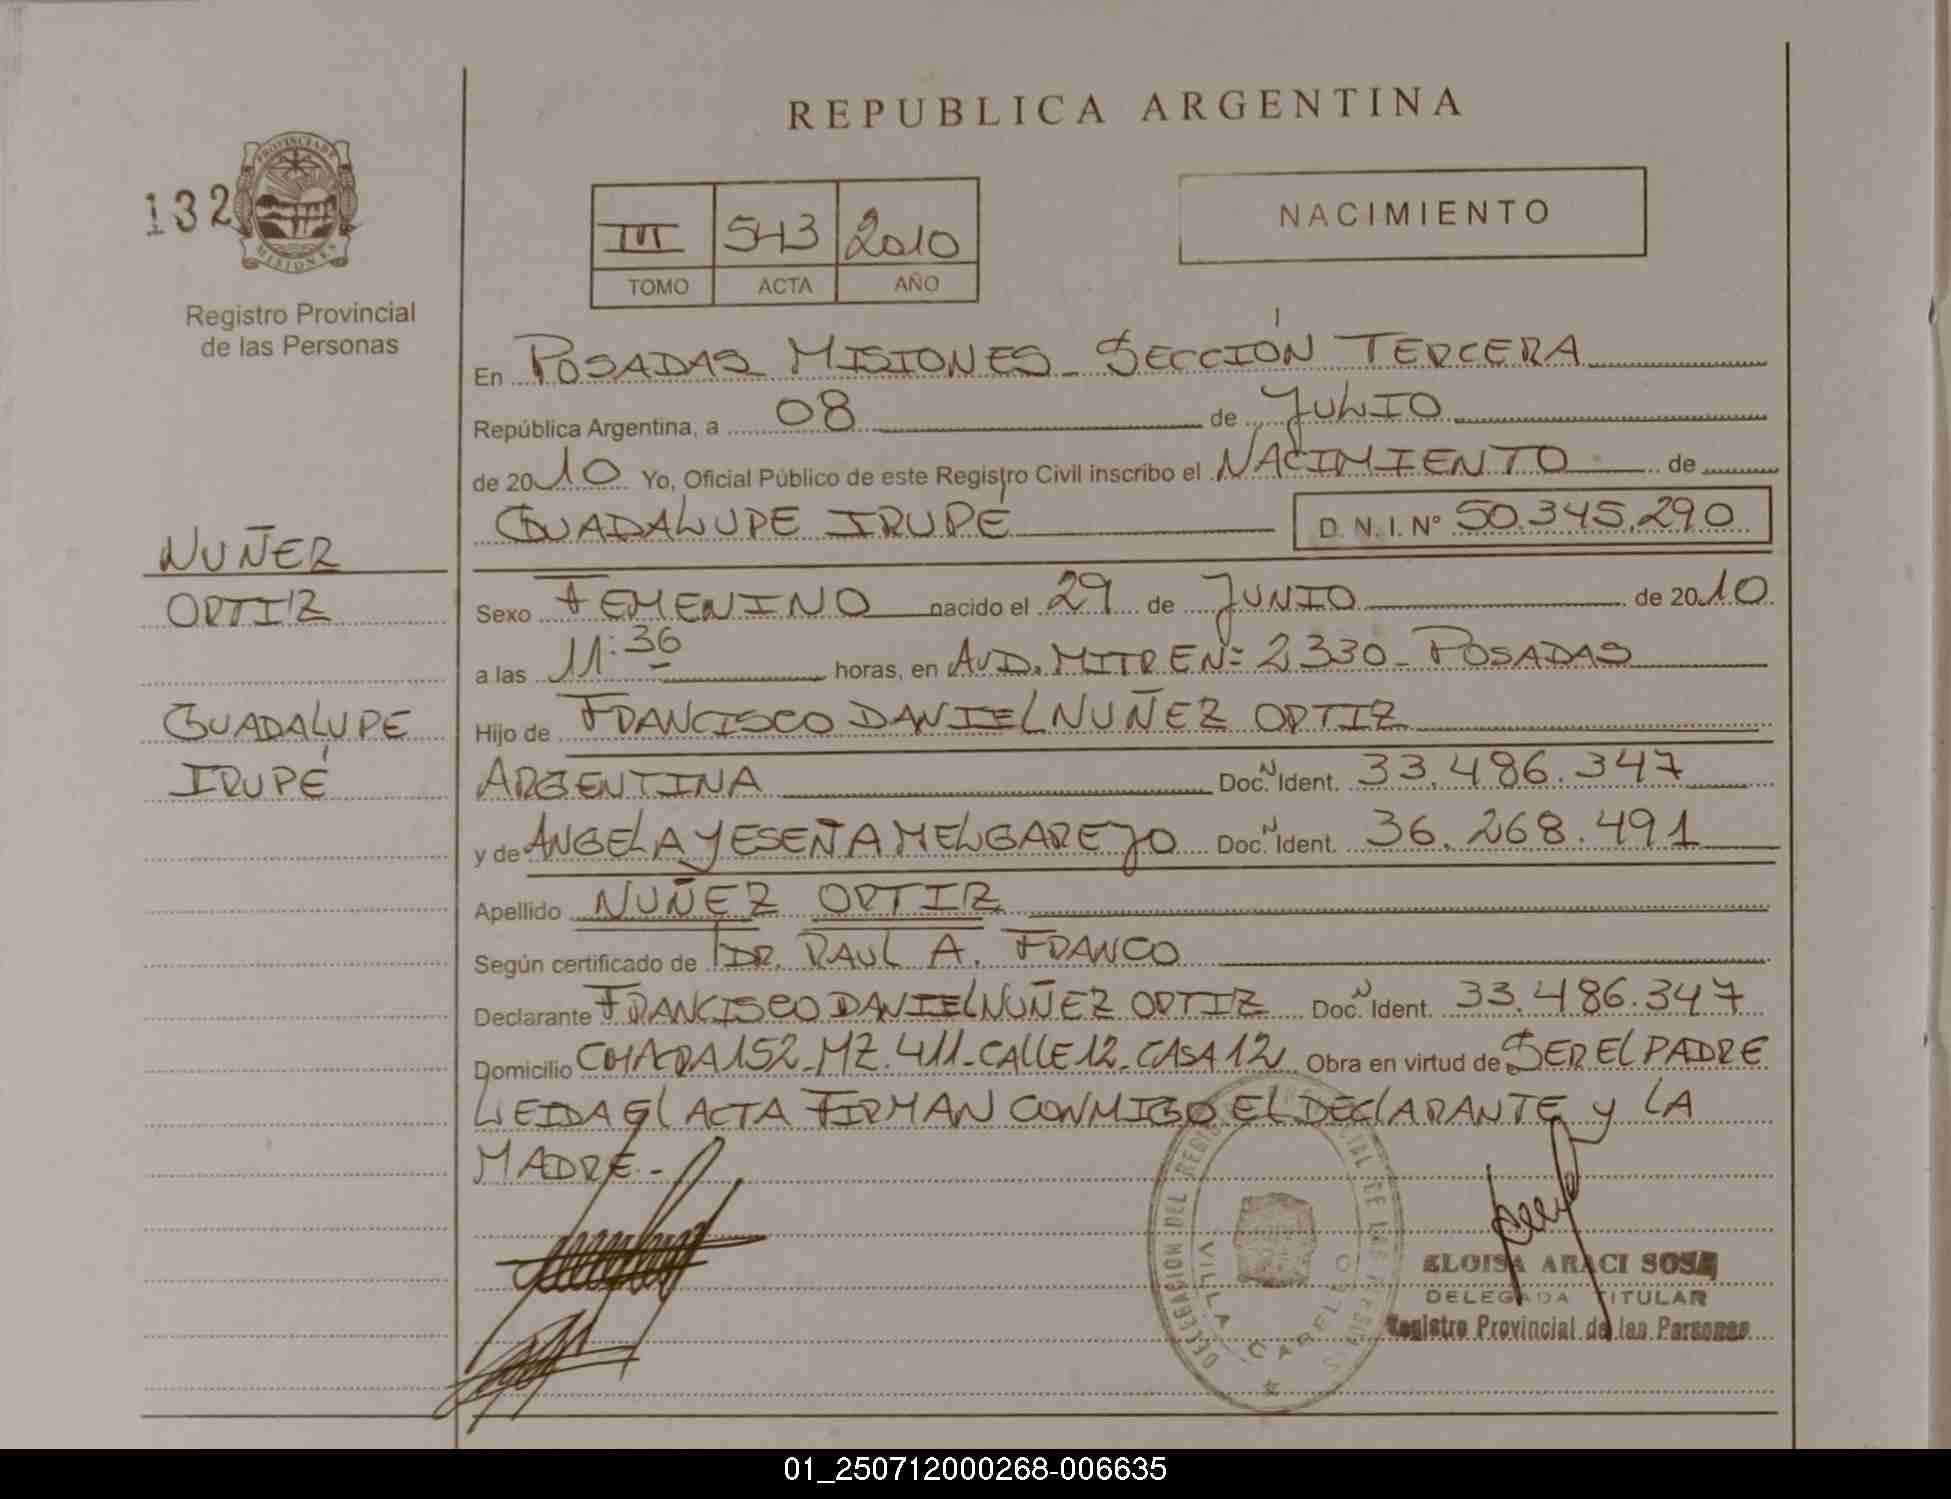 REPUBLICA ARGENTINA
132
PROVINCIA DE MISIONES
Registro Provincial
de las Personas
III 543 2010
TOMO ACTA AÑO
NACIMIENTO
En POSADAS MISIONES - SECCIÓN TERCERA
República Argentina, a 08 de JULIO
de 2010 Yo, Oficial Público de este Registro Civil inscribo el NACIMIENTO de
GUADALUPE IRUPÉ D.N.I. N° 50.345.290
NUÑEZ
ORTIZ
GUADALUPE
IRUPÉ
Sexo FEMENINO nacido el 29 de JUNIO de 2010
a las 11:36 horas, en AVD. MITRE Nº 2330 - POSADAS
Hijo de FRANCISCO DANIEL NUÑEZ ORTIZ
ARGENTINA Doc.N Ident. 33.486.347
y de ANGELA YESEÑA MELGAREJO Doc.N Ident. 36.268.491
Apellido NUÑEZ ORTIZ
Según certificado de DR. RAUL A. FRANCO
Declarante FRANCISCO DANIEL NUÑEZ ORTIZ Doc.N Ident. 33.486.347
Domicilio CHACRA 152 - MZ. 411 - CALLE 12 - CASA 12 Obra en virtud de SER EL PADRE
LEIDA EL ACTA FIRMAN CONMIGO EL DECLARANTE y LA
MADRE.-
DELEGACION DEL REGISTRO PROVINCIAL DE LAS PERSONAS
VILLA CABELLO
ELOISA ARACI SOSA
DELEGADA TITULAR
Registro Provincial de las Personas
01_250712000268-006635